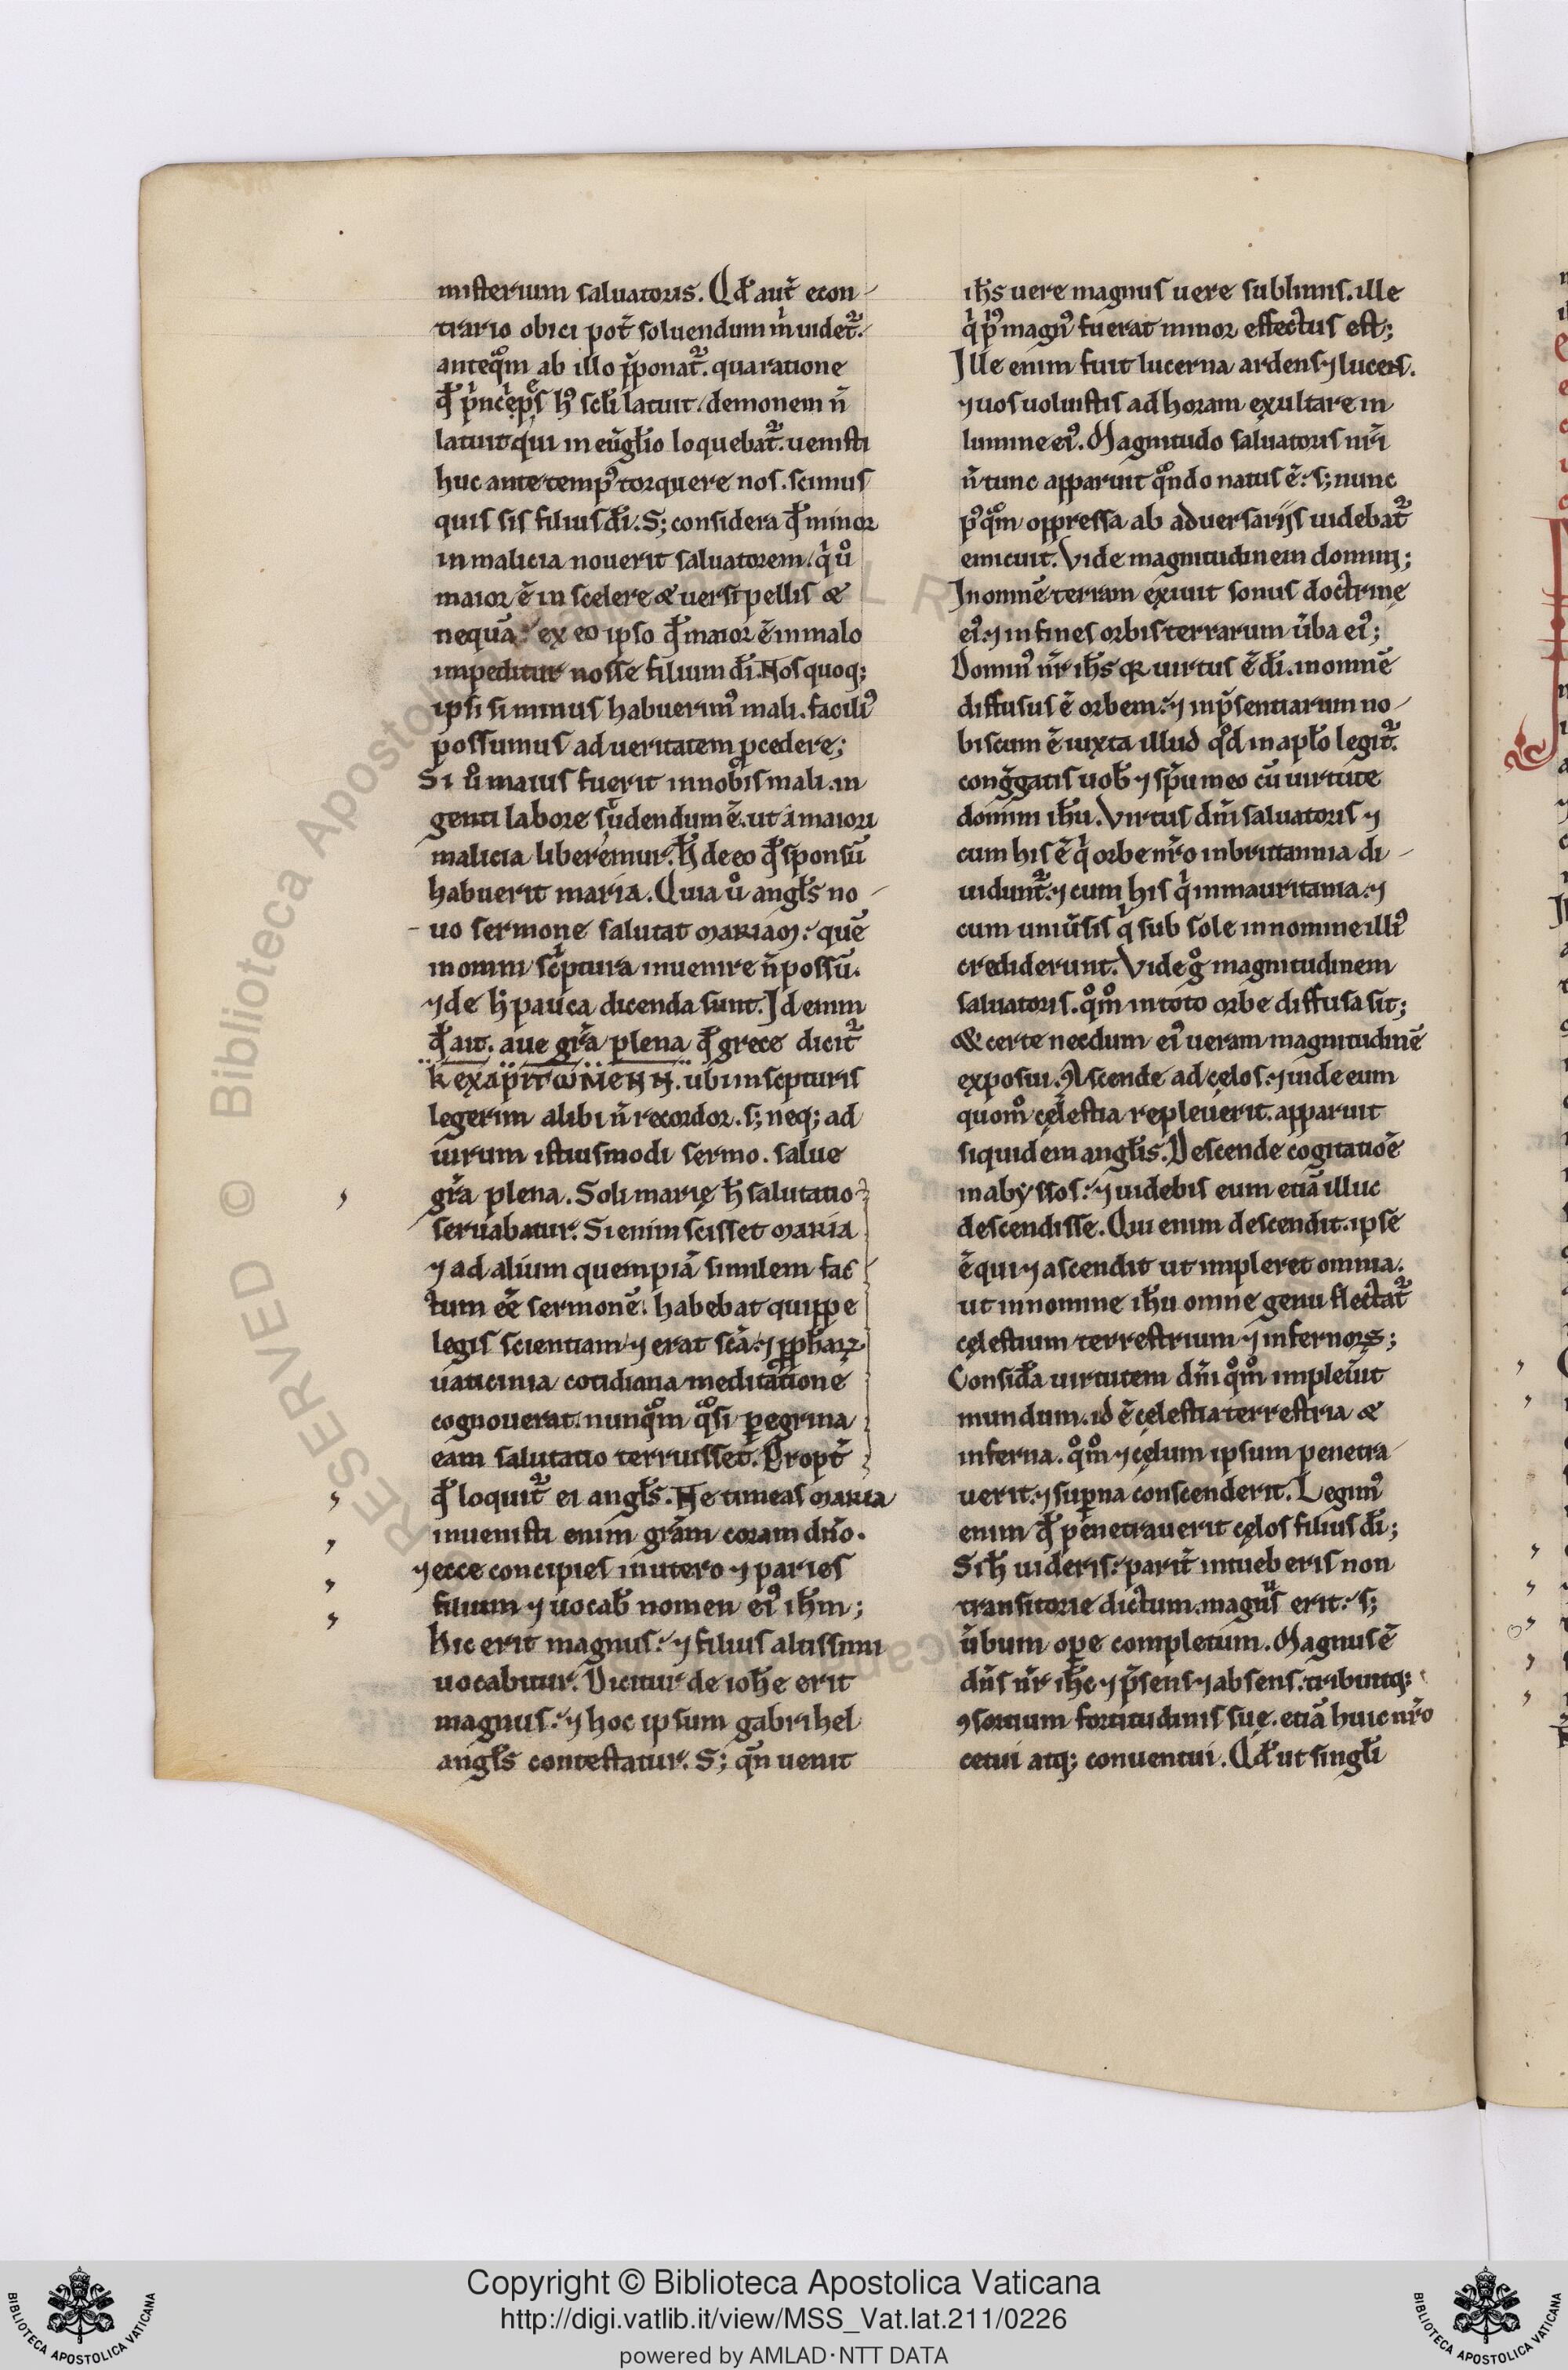 misterium saluatoris. Qđ aut̄ econ-
trario obici pot̄ soluendum m̄ uidet᷑.
anteqͣm ab illo p̄ponat᷑. qua ratione
qđ p̄nceps hꝰ scl̄i latuit, demonem n̄
latuit qui in euḡlio loquebat᷑. uenisti
huc ante tempꝰ torquere nos. scimus
quis sis filius dī. S; considera qđ minor
in malicia nouerit saluatorem, qͥ uͦ
maior ē in scelere & uersipellis &
nequā. ex eo ipso qđ maior ē in malo
impeditur nosse filium dī. Nos quoq;
ipsi si minus habuerimꝰ mali. faciliꝰ
possumus ad ueritatem ꝓcedere;
Si uͦ maius fuerit in nobis mali. in
genti labore sudendum ē. ut a maiori
malicia liberemur. ħ de eo qđ sponsū
habuerit maria. Quia uͦ angl̄s no-
uo sermone salutat mariam. quē
in omni sc̄ptura inuenire n̄ possū.
⁊ de h̄ pauca dicenda sunt. Id enim
qđ ait. aue gr̄a plena qđ grece dicit᷑
kexapitωmenh. ubi in scpturis
legerim alibi n̄ recordor. s; neq; ad
uirum istiusmodi sermo. salue
gr̄a plena. Soli marię ħ salutatio
seruabatur. Si enim scisset maria
⁊ ad alium quempiā similem fac
tum eē sermonē. habebat quippe
legis scientiam. ⁊ erat sc̄a. ⁊ ꝓphaꝝ
uaticinia cotidiana meditatione
cognouerat. nunqͣm qͣsi peregrina
eam salutatio terruisset. Propt̄
qđ loquit᷑ ei angl̄s. Ne timeas maria
inuenisti enim gr̄am coram dn̄o.
⁊ ecce concipies in utero ⁊ paries
filium ⁊ uocab̄ nomen eiꝰ ih̄m;
hic erit magnus. ⁊ filius altissimi
uocabitur. Dicitur de ioh̄e erit
magnus. ⁊ hoc ipsum gabrihel
angl̄s contestatur. S; qn̄ uenit
ih̄s uere magnus uere sublimis. ille
qͥ pͥꝰ magnꝰ fuerat minor effectus est;
Ille enim fuit lucerna ardens ⁊ lucens.
⁊ uos uoluistis ad horam exultare in
lumine eiꝰ. Magnitudo saluatoris nr̄i
n̄ tunc apparuit qͣndo natus ē. s; nunc
pꝰqͣm oppressa ab aduersarijs uidebat᷑
emicuit. Vide magnitudinem domini;
In omnē terram exiuit sonus doctrinę
eiꝰ. ⁊ in fines orbis terrarum ūba eiꝰ;
Dominꝰ nr̄ ih̄s qꝛ uirtus ē dī. in omnē
diffusus ē orbem. ⁊ in p̄sentiarum no-
biscum ē iuxta illud qͦd in apl̄o legit᷑.
congͣgatis uob̄ ⁊ sp̄u meo cū uirtute
domini ih̄u. Virtus dn̄i saluatoris ⁊
cum his ē qͥ orbe nr̄o in brittannia di-
uidunt᷑. ⁊ cum his qͥ in mauritania. ⁊
cum uniūsis qͥ sub sole in nomine illiꝰ
crediderunt. Vide gͦ magnitudinem
saluatoris. qͦmͦ in toto orbe diffusa sit;
& certe necdum eiꝰ ueram magnitudinē
exposui. Ascende ad cęlos. ⁊ uide eum
quomͦ cęlestia repleuerit. apparuit
siquidem angl̄is. Descende cogitatiōe
in abyssos. ⁊ uidebis eum etiā illuc
descendisse. Qui enim descendit. ipse
ē qui ⁊ ascendit ut impleret omnia.
ut in nomine ih̄u omne genu flectat᷑
cęlestium terrestrium ⁊ infernoꝝ;
Considͣa uirtutem dn̄i qͦmͦ impleūit
mundum. id ē cęlestia terrestria &
inferna. qͦmͦ ⁊ cęlum ipsum penetra
uerit. ⁊ supͣna conscenderit. Legimꝰ
enim qđ penetrauerit cęlos filius dī;
Si ħ uideris. parit̄ intueberis non
transitorie dictum. magnus erit. s;
ūbum ope completum. Magnus ē
dn̄s nr̄ ih̄c ⁊ p̄sens ⁊ absens. tribuitq;
ꝯsortium fortitudinis suę. etiā huic nr̄o
cetui atq; conuentui. Qđ ut singl̄i
Copyright © Biblioteca Apostolica Vaticana
http://digi.vatlib.it/view/MSS_Vat.lat.211/0226
powered by AMLAD·NTT DATA